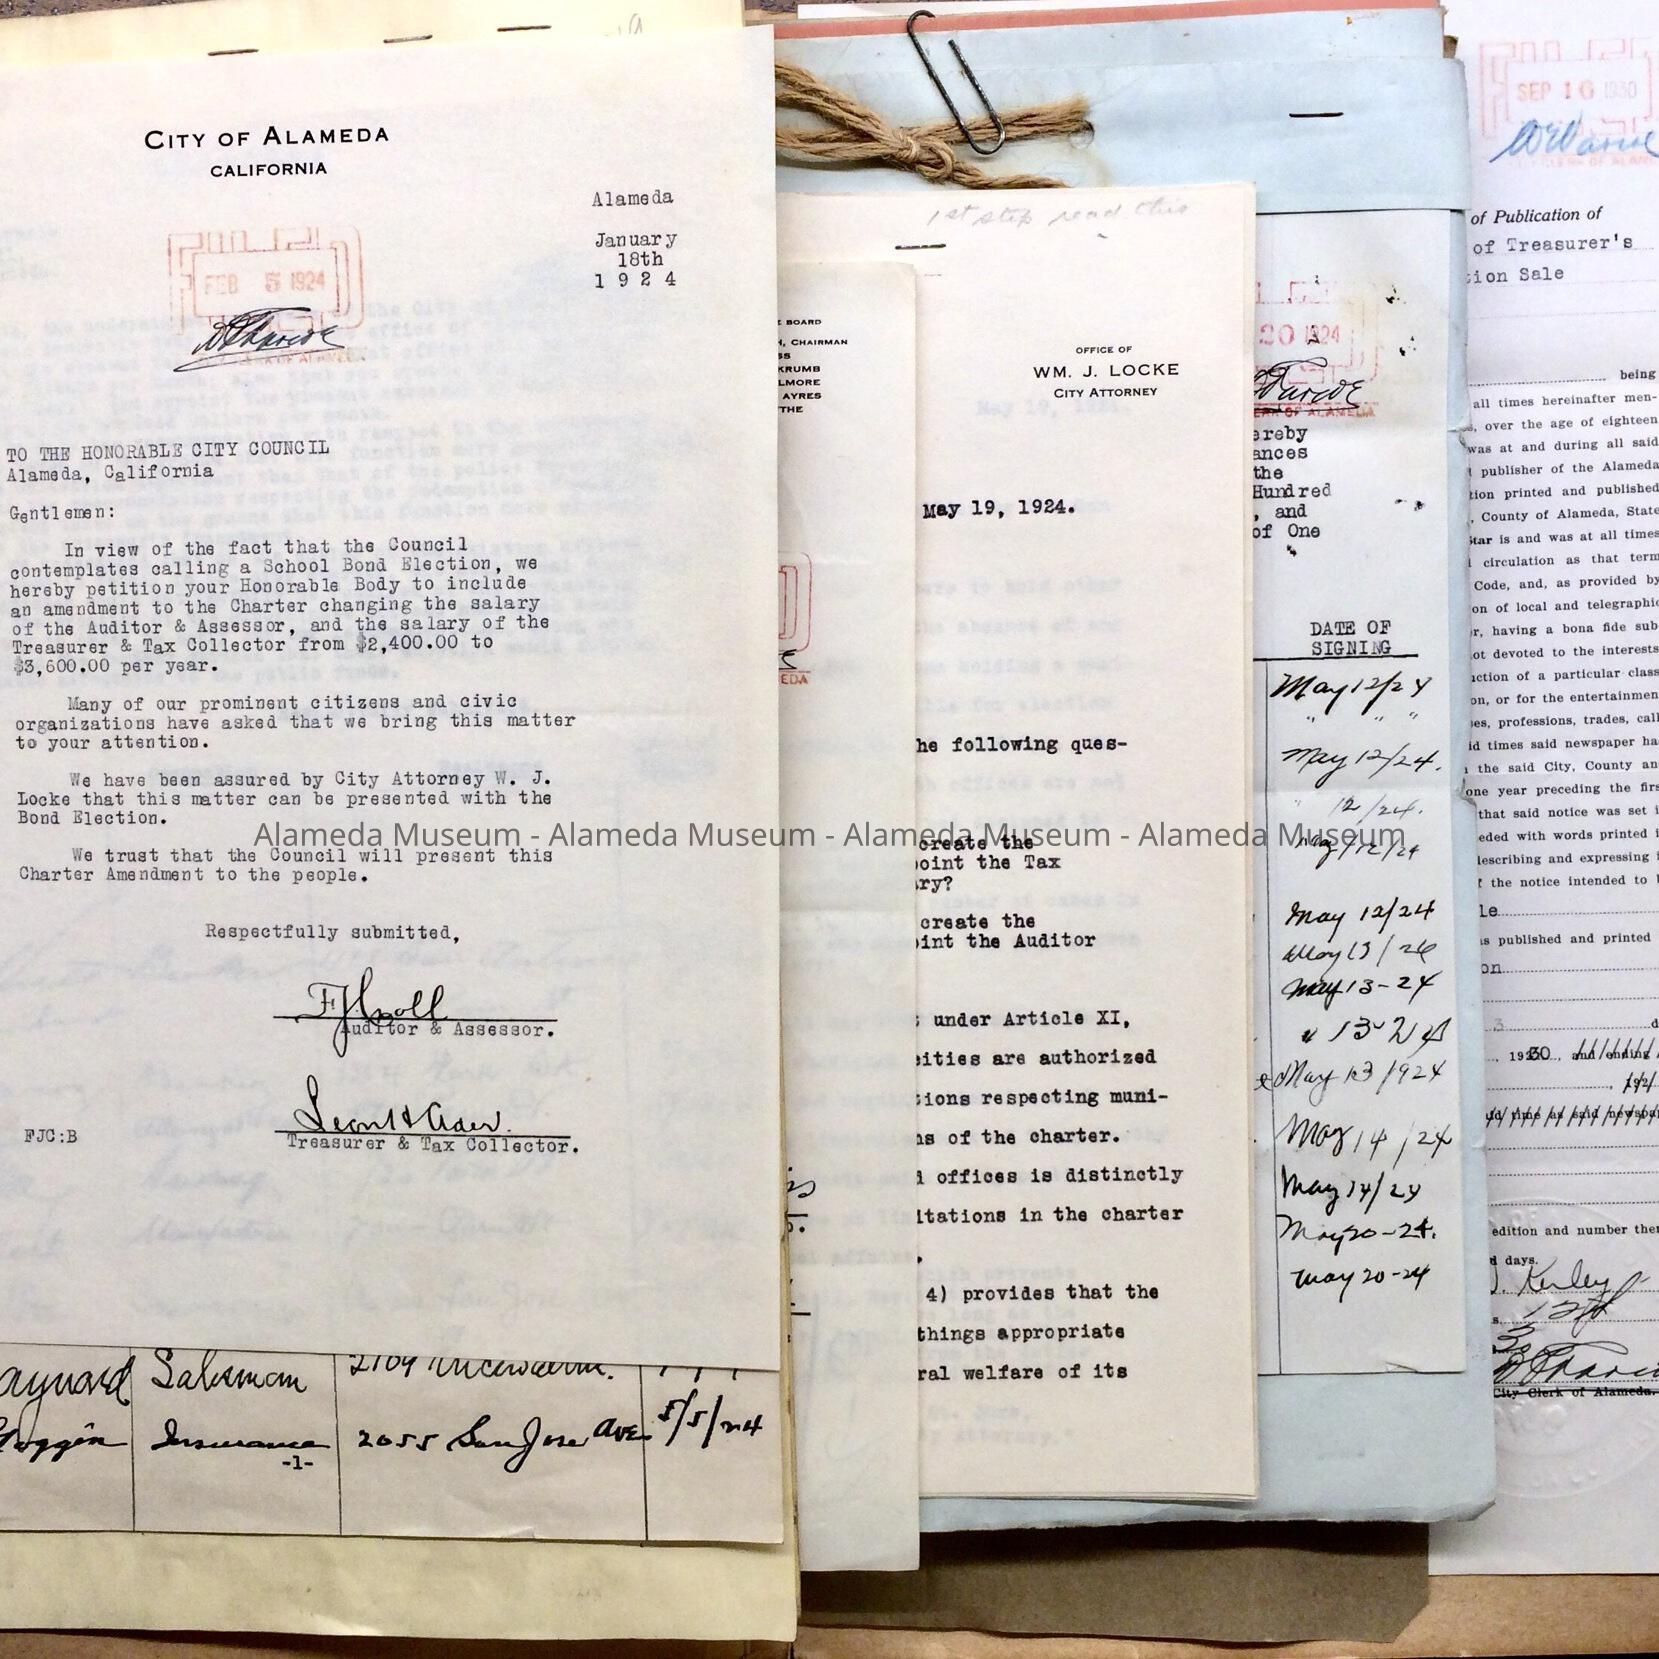 CITY OF ALAMEDA
CALIFORNIA
Alameda
January
18th
1924
FEB 5 1924
CLERK OF ALAMEDA
TO THE HONORABLE CITY COUNCIL
Alameda, California
Gentlemen:
In view of the fact that the Council
contemplates calling a School Bond Election, we
hereby petition your Honorable Body to include
an amendment to the Charter changing the salary
of the Auditor & Assessor, and the salary of the
Treasurer & Tax Collector from $2,400.00 to
$3,600.00 per year.
Many of our prominent citizens and civic
organizations have asked that we bring this matter
to your attention.
We have been assured by City Attorney W. J.
Locke that this matter can be presented with the
Bond Election.
We trust that the Council will present this
Charter Amendment to the people.
Respectfully submitted,
Auditor & Assessor.
Treasurer & Tax Collector.
FJC:B
Salesman
Insurance 2055 San Jose Ave 5/5/24
-1-
E BOARD
H, CHAIRMAN
SS
KRUMB
LMORE
AYRES
THE
EDA
1st step read this
OFFICE OF
WM. J. LOCKE
CITY ATTORNEY
May 19, 1924.
he following ques-
create the
point the Tax
ry?
create the
oint the Auditor
under Article XI,
cities are authorized
tions respecting muni-
ns of the charter.
d offices is distinctly
itations in the charter
4) provides that the
things appropriate
ral welfare of its
20 1924
CLERK OF ALAMEDA
ereby
ances
the
Hundred
, and
of One
DATE OF
SIGNING
May 12/24
" " "
May 12/24.
" 12/24.
May 12/24
May 12/24
May 13/24
May 13-24
" 13-24
May 13/1924
May 14/24
May 14/24
May 20-24.
May 20-24
SEP 16 1930
of Publication of
of Treasurer's
tion Sale
being
all times hereinafter men-
s, over the age of eighteen
was at and during all said
publisher of the Alameda
tion printed and published
, County of Alameda, State
Star is and was at all times
circulation as that term
Code, and, as provided by
on of local and telegraphic
r, having a bona fide sub-
ot devoted to the interests
ction of a particular class
on, or for the entertainmen
es, professions, trades, call
id times said newspaper ha
the said City, County an
one year preceding the firs
that said notice was set i
eded with words printed i
describing and expressing i
f the notice intended to b
le
s published and printed
on
3 d
, 1930, and ending
192
id time as said newspap
edition and number ther
d days.
City Clerk of Alameda.
Alameda Museum - Alameda Museum - Alameda Museum - Alameda Museum